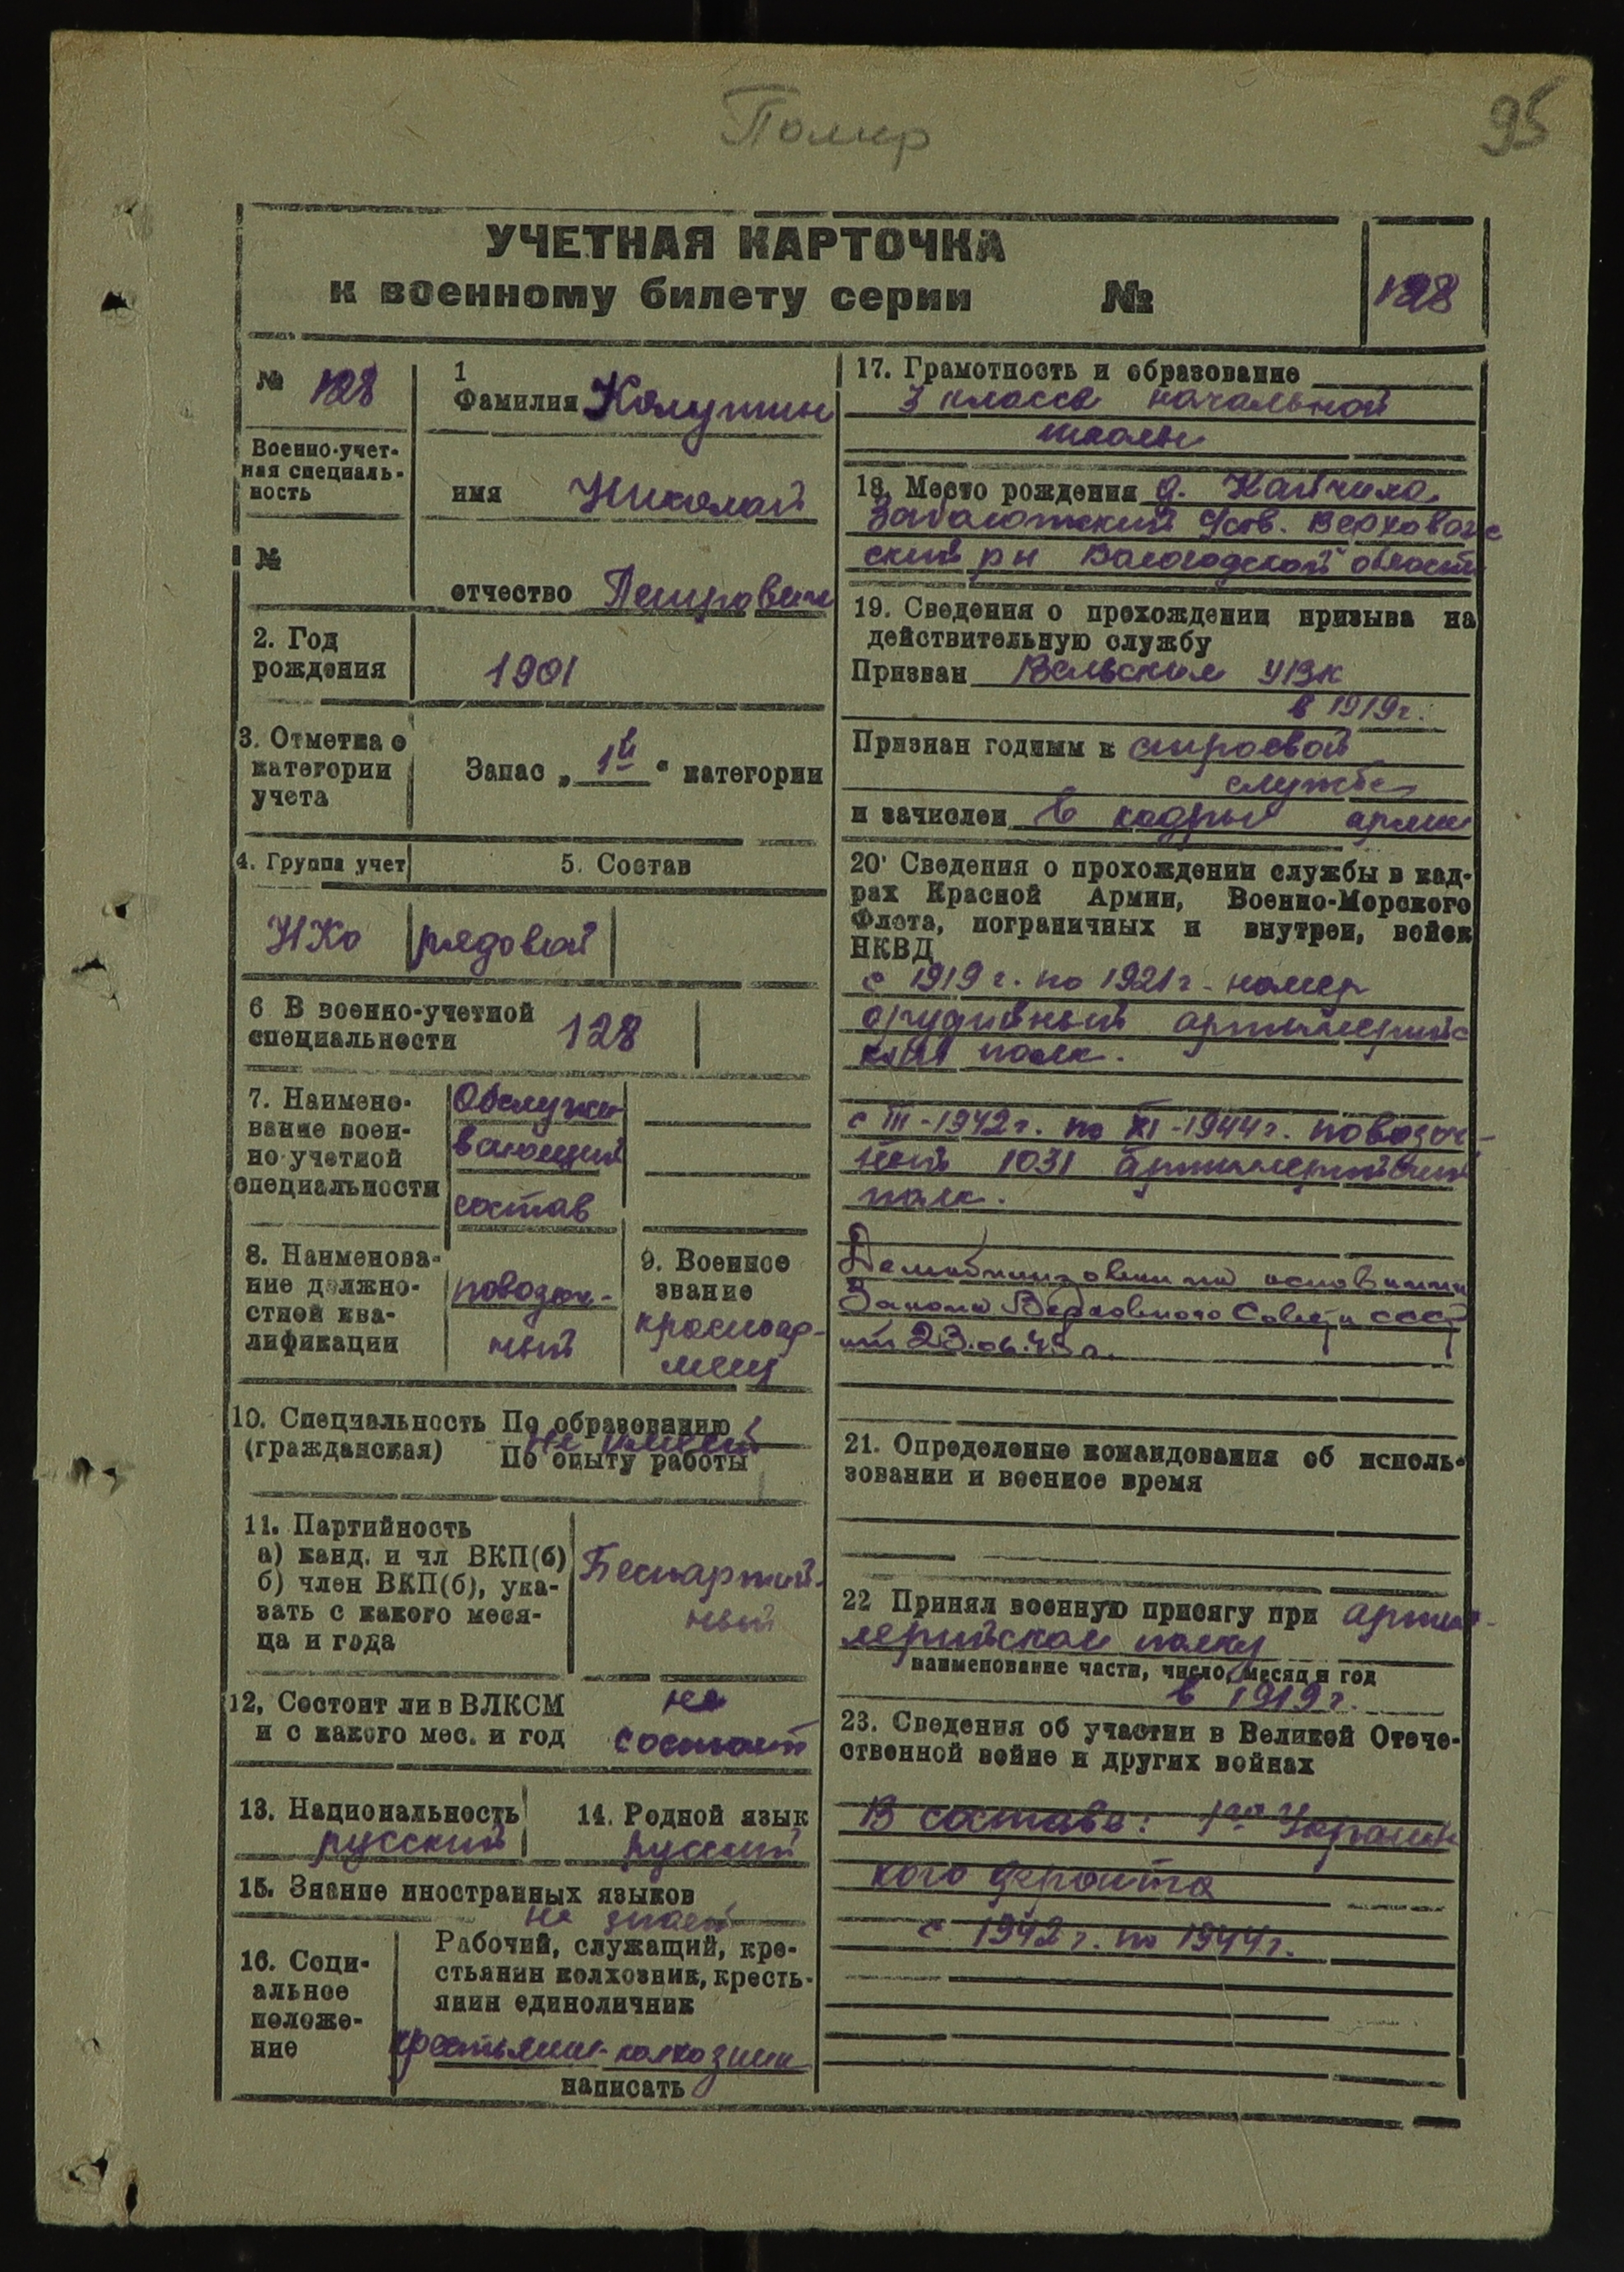 Помер
95
УЧЕТНАЯ КАРТОЧКА
к военному билету серии №
128
№ 128
Военно-учет-
ная специаль-
ность
№
1
Фамилия
имя Николай
отчество Петрович
2. Год
рождения
1901
3. Отметка о
категории
учета
Запас „ 1й “ категории
4. Группа учет
5. Состав
НКО рядовой
6 В военно-учетной
специальности
128
7. Наимено-
вание воен-
но-учетной
специальности
Обслужи-
вающий
состав
8. Наименова-
ние должно-
стной ква-
лификации
повозоч-
ный
9. Военное
звание
красноар-
меец
10. Специальность По образованию
(гражданская) По опыту работы
не имеет
11. Партийность
а) канд. и чл ВКП(б)
б) член ВКП(б), ука-
зать с какого меся-
ца и года
Беспартий-
ный
12, Состоит ли в ВЛКСМ
и с какого мес. и год
не
состоит
13. Национальность
русский
14. Родной язык
русский
15. Знание иностранных языков
не знает
16. Соци-
альное
положе-
ние
Рабочий, служащий, кре-
стьянин колхозник, кресть-
янин единоличник
крестьянин-колхозник
написать
17. Грамотность и образование
3 класса начальной
школы
18. Место рождения д.
с/сов. Верховаж
ский рн Вологодской области
19. Сведения о прохождении призыва на
действительную службу
Призван Вельским УВК
в 1919г.
Признан годным к строевой
службе
и зачислен в кадры армии
20· Сведения о прохождении службы в кад-
рах Красной Армии, Военно-Морского
Флота, пограничных и внутрен, войск
НКВД
с 1919 г. по 1921 г - номер
орудийный артиллерийс
кий полк.
с III-1942 г. по XI-1944 г. повозоч-
ный 1031 артиллерийский
полк.
Демобилизован на основании
Закона Верховного Совета СССР
от 23.06.45 г.
21. Определение командования об исполь-
зовании и военное время
22 Принял военную присягу при артил-
лерийском полку
наименование части, число, месяц и год
в 1919 г.
23. Сведения об участии в Великой Отече-
ственной войне и других войнах
В составе: 1го Украинс
кого фронта
с 1942 г. по 1944 г.